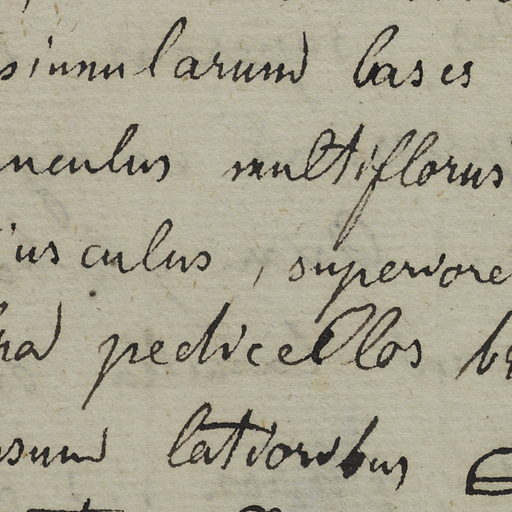 pinnularum bases
nculus multiflorus
iusculus, superiore
pedicellos
sum latioribus